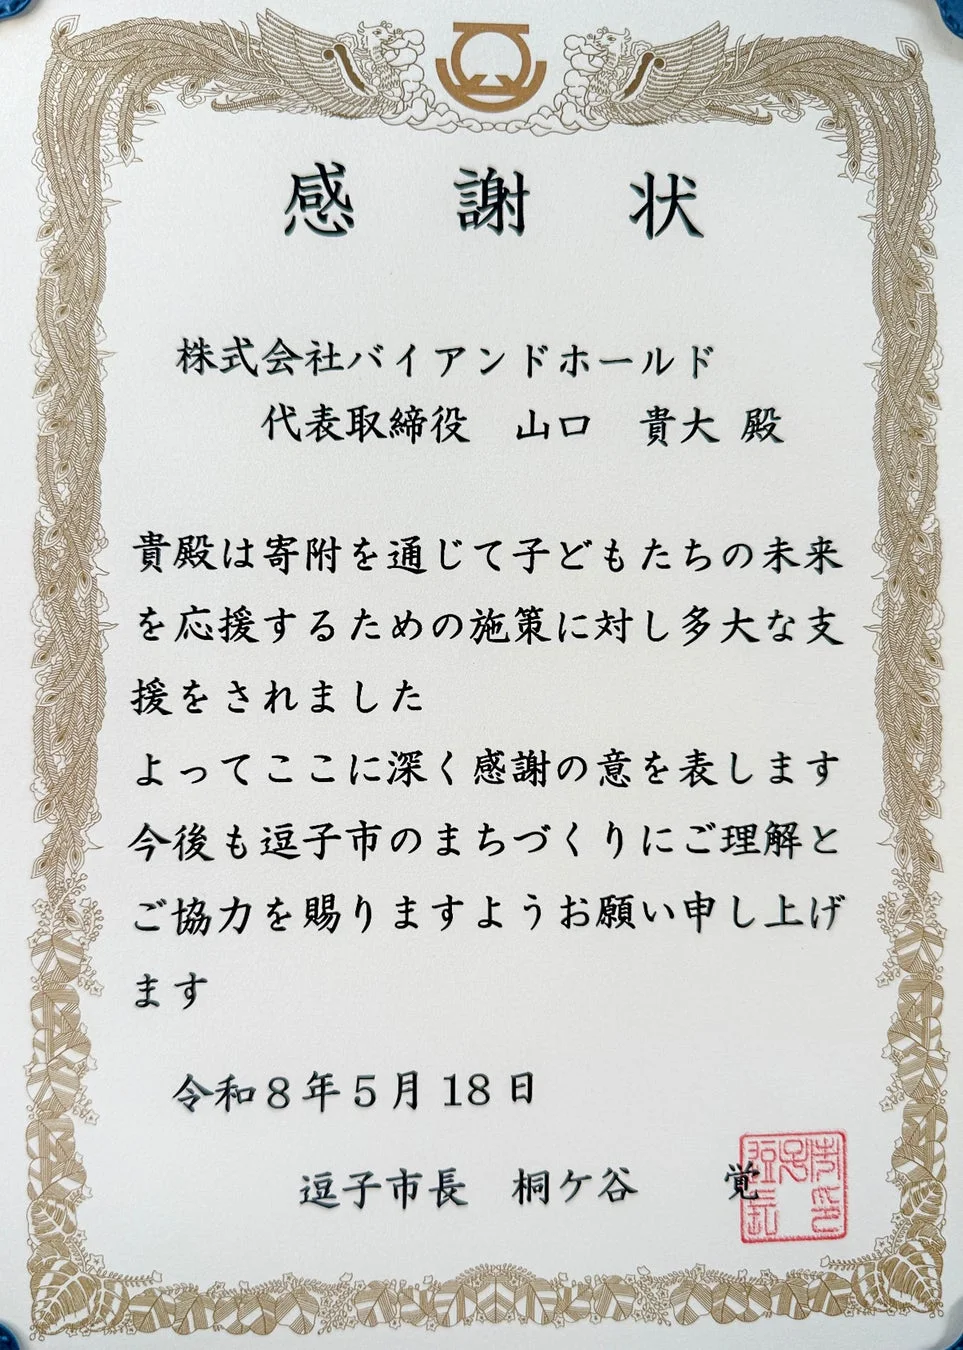 感謝状
株式会社バイアンドホールド
代表取締役 山口 貴大 殿
貴殿は寄附を通じて子どもたちの未来
を応援するための施策に対し多大な支
援をされました
よってここに深く感謝の意を表します
今後も逗子市のまちづくりにご理解と
ご協力を賜りますようお願い申し上げ
ます
令和8年5月18日
逗子市長 桐ケ谷 覚